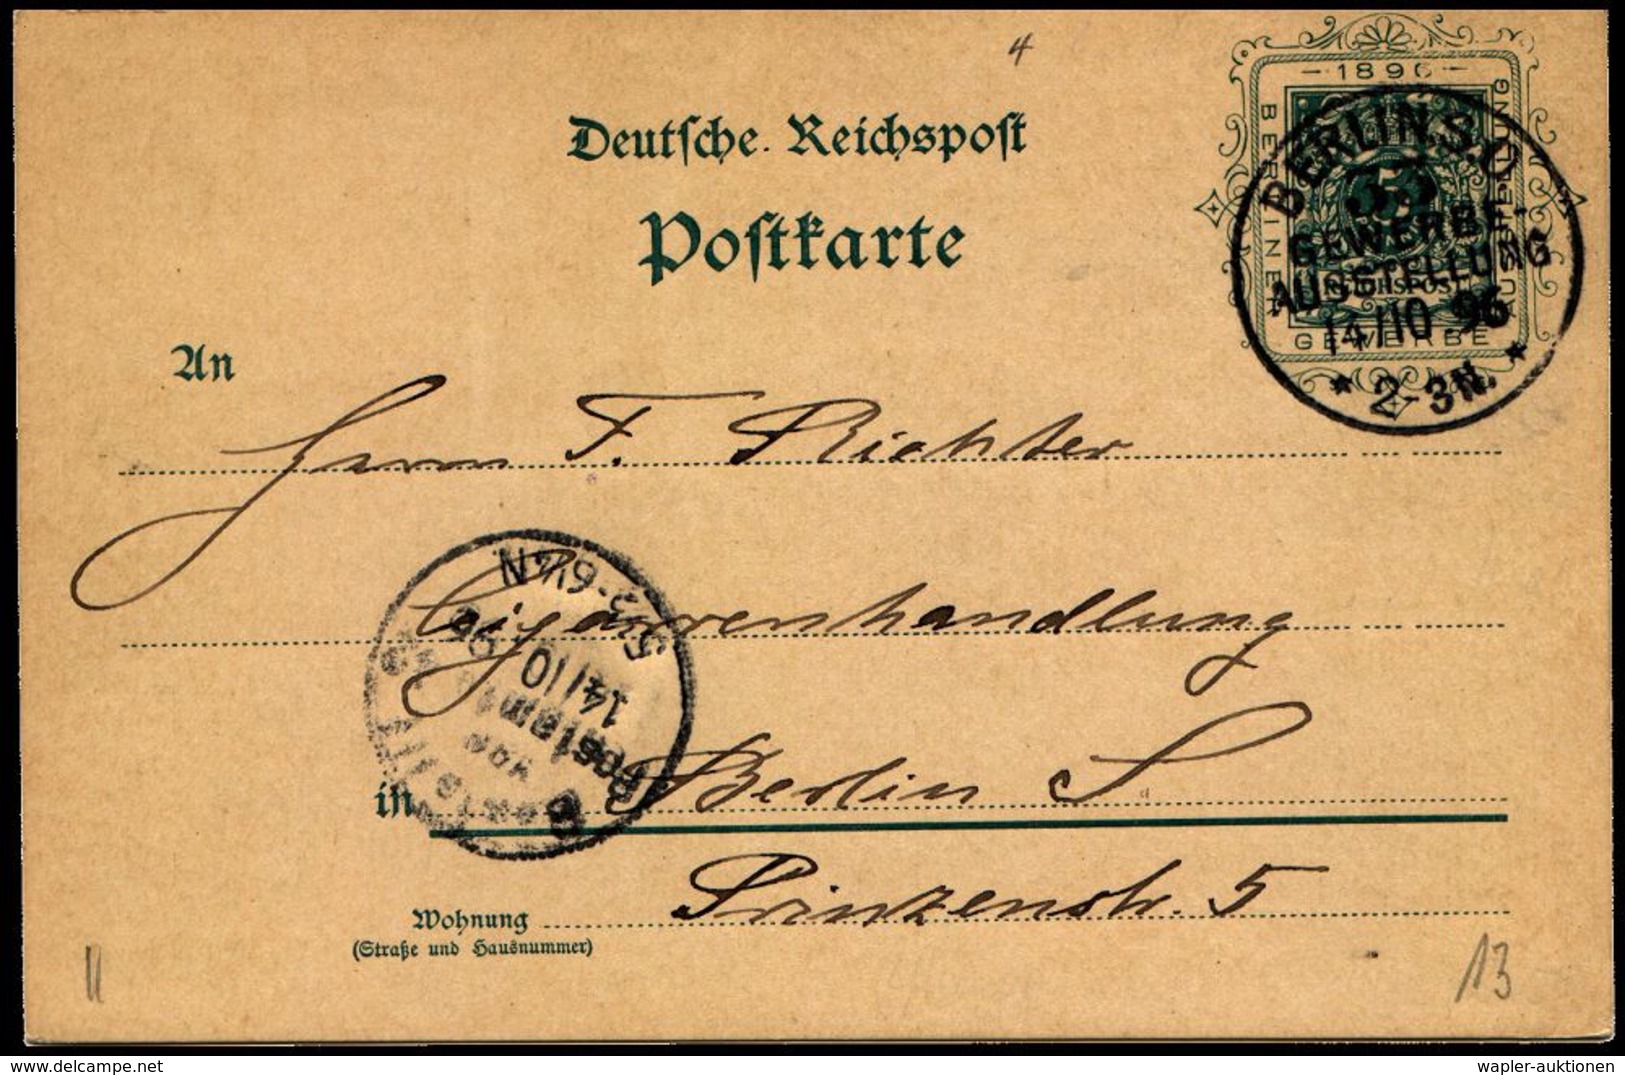 4
Deutsche Reichspost
Postkarte
1896
BERLINER
GEWERBE
AUSSTELLUNG
5
REICHSPOST
BERLIN.S.O.
33
GEWERBE-
AUSSTELLUNG
14/10 96
* 2-3N. *
An
Herrn F. Richter
Cigarrenhandlung
in Berlin S
Prinzenstr. 5
Wohnung
(Straße und Hausnummer)
Bestellt
vom
Postamt
14/10 96
5 1/2-6 1/4 N
11
13
wapler-auktionen